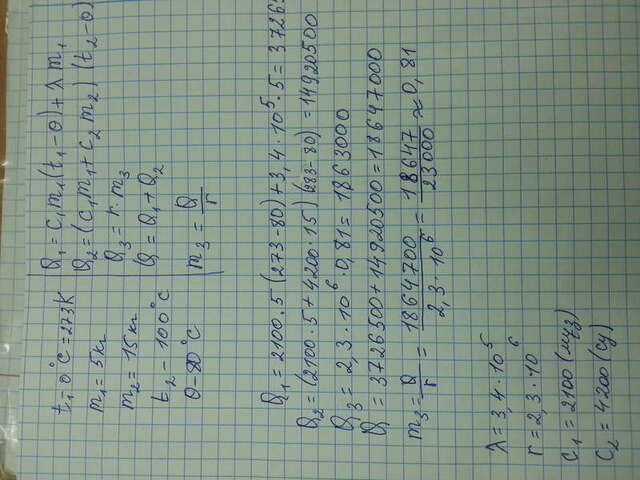 t₁ = 0°C = 273K
m₁ = 5кг
m₂ = 15кг
t₂ - 100°C
θ - 80°C
Q₁ = c₁m₁(t₁-θ) + λm₁
Q₂ = (c₁m₁ + c₂m₂)(t₂-θ)
Q₃ = r·m₃
Q = Q₁ + Q₂
m₃ = Q/r
Q₁ = 2100·5(273-80) + 3,4·10⁵·5 = 37265
Q₂ = (2100·5 + 4200·15)(283-80) = 14920500
Q₃ = 2,3·10⁶·0,81 = 1863000
Q = 3726500 + 14920500 = 18647000
m₃ = Q/r = 1864700/2,3·10⁶ = 18647/23000 ≈ 0,81
λ = 3,4·10⁵
r = 2,3·10⁶
c₁ = 2100
c₂ = 4200